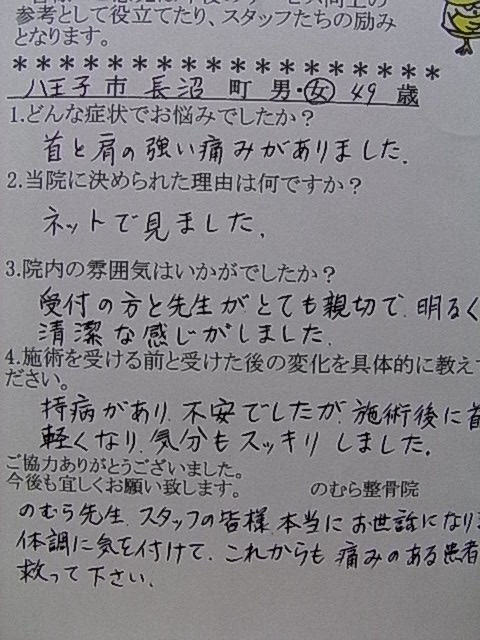 参考として役立てたり、スタッフたちの励み
となります。
＊＊＊＊＊＊＊＊＊＊＊＊＊＊＊＊＊＊
八王子市 長沼 町 男・女 49 歳
1.どんな症状でお悩みでしたか？
首と肩の強い痛みがありました.
2.当院に決められた理由は何ですか？
ネットで見ました.
3.院内の雰囲気はいかがでしたか？
受付の方と先生がとても親切で.明るく
清潔な感じがしました.
4.施術を受ける前と受けた後の変化を具体的に教えて
ださい。
持病があり.不安でしたが.施術後に首
軽くなり.気分もスッキリしました.
ご協力ありがとうございました。
今後も宜しくお願い致します。 のむら整骨院
のむら先生.スタッフの皆様.本当にお世話になりま
体調に気を付けて.これからも痛みのある患者
救って下さい.